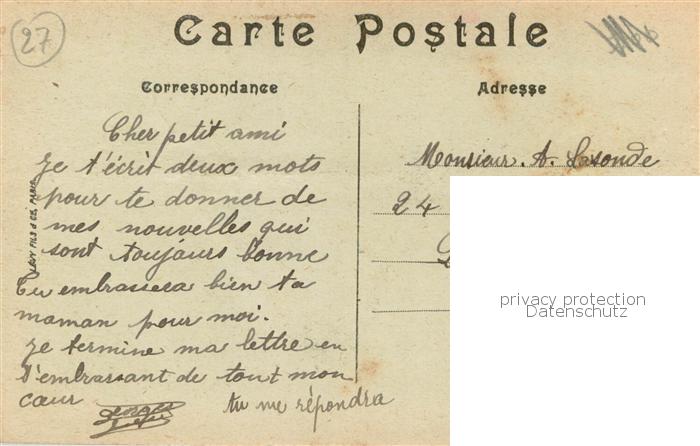 27
Carte Postale
Correspondance
Adresse
Cher petit ami
Je t'écrit deux mots
pour te donner de
mes nouvelles qui
sont toujours bonne
Tu embrassera bien ta
maman pour moi.
Je termine ma lettre en
t'embrassant de tout mon
cœur
Georges
tu me répondra
LEVY FILS & CIE, PARIS
Monsieur. A.
24
privacy protection
Datenschutz